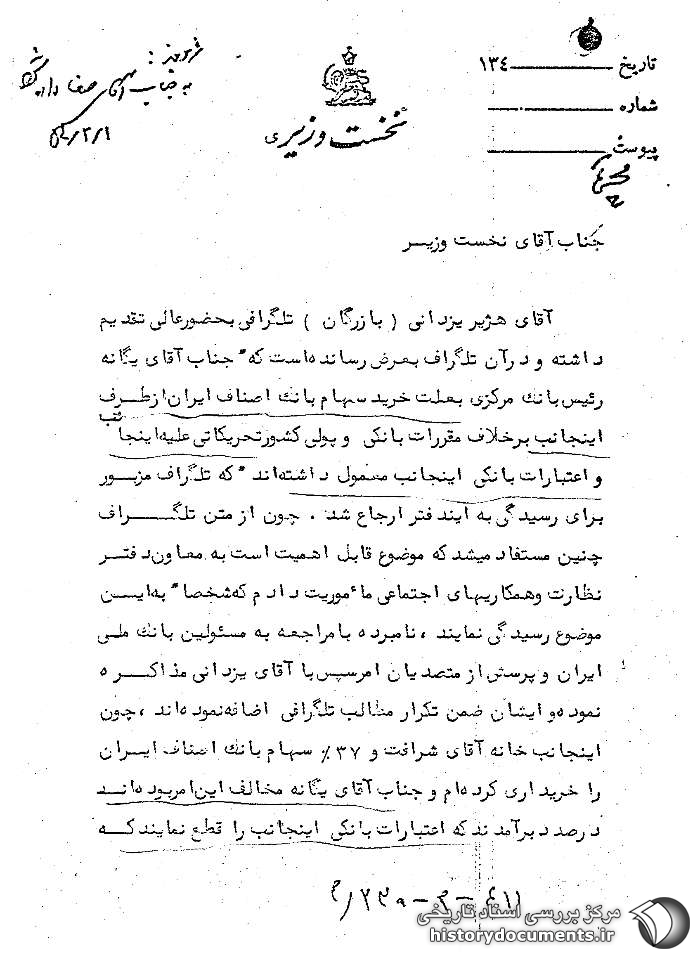 تاریخ ــــــــ ۱۳۴
شماره ــــــــ
پیوست ــــــــ
نخست وزیری
به جناب آقای صفا
جناب آقای نخست وزیـــر
آقای هژبر یزدانی ( بازرگان ) تلگرافی بحضورعالی تقدیم
داشته و درآن تلگراف بعرض رسانده‌است که " جناب آقای یگانه
رئیس بانك مرکزی بعلت خرید سهام بانك اصناف ایران ازطرف
اینجانب برخلاف مقررات بانکی و پولی کشور تحریکاتی علیه اینجانب
و اعتبارات بانکی اینجانب معمول داشته‌اند " که تلگراف مزبور
برای رسیدگی به ایندفتر ارجاع شد . چون از متن تلگـــراف
چنین مستفاد میشد که موضوع قابل اهمیت است به معاون دفتـر
نظارت وهمکاریهای اجتماعی مأموریت دادم که شخصا" به ایــن
موضوع رسیدگی نمایند ، نامبرده با مراجعه به مسئولین بانك ملی
ایران و پرسش از متصدیان امر سپس با آقای یزدانی مذاکــره
نموده و ایشان ضمن تکرار مطالب تلگرافی اضافه نموده‌اند ، چون
اینجانب خانه آقای شرافت و ۳۷٪ سهام بانك اصناف ایــران
را خریداری کرده‌ام و جناب آقای یگانه مخالف این امر بوده‌انــد
درصدد برآمدند که اعتبارات بانکی اینجانب را قطع نمایند کــه
مرکز بررسی اسناد تاریخی
historydocuments.ir